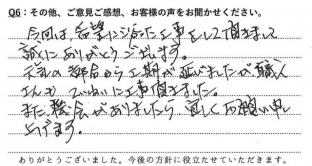 Q6：その他、ご意見ご感想、お客様の声をお聞かせください。
今回は、希望に添った工事をして頂きまして
誠にありがとうございます。
天気の都合から工期が延びましたが職人
さんも ていねいに工事頂きました。
また、機会がありましたら 宜しくお願い申し
上げます。
ありがとうございました。今後の方針に役立たせていただきます。